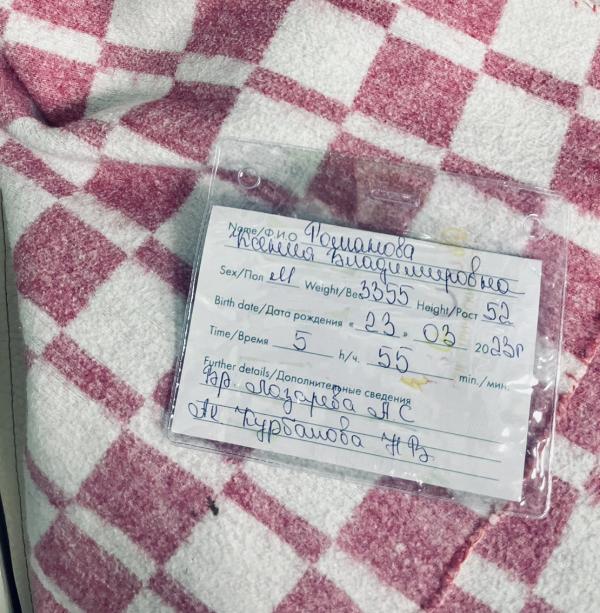 Name/Ф.И.О Романова
Ксения Владимировна
Sex/Пол м Weight/Вес 3355 Height/Рост 52
Birth date/Дата рождения « 23 » 03 2023г
Time/Время 5 h/ч. 55 min./мин.
Further details/Дополнительные сведения
Вр. Лазарева А С
Ак Курбанова Н В.